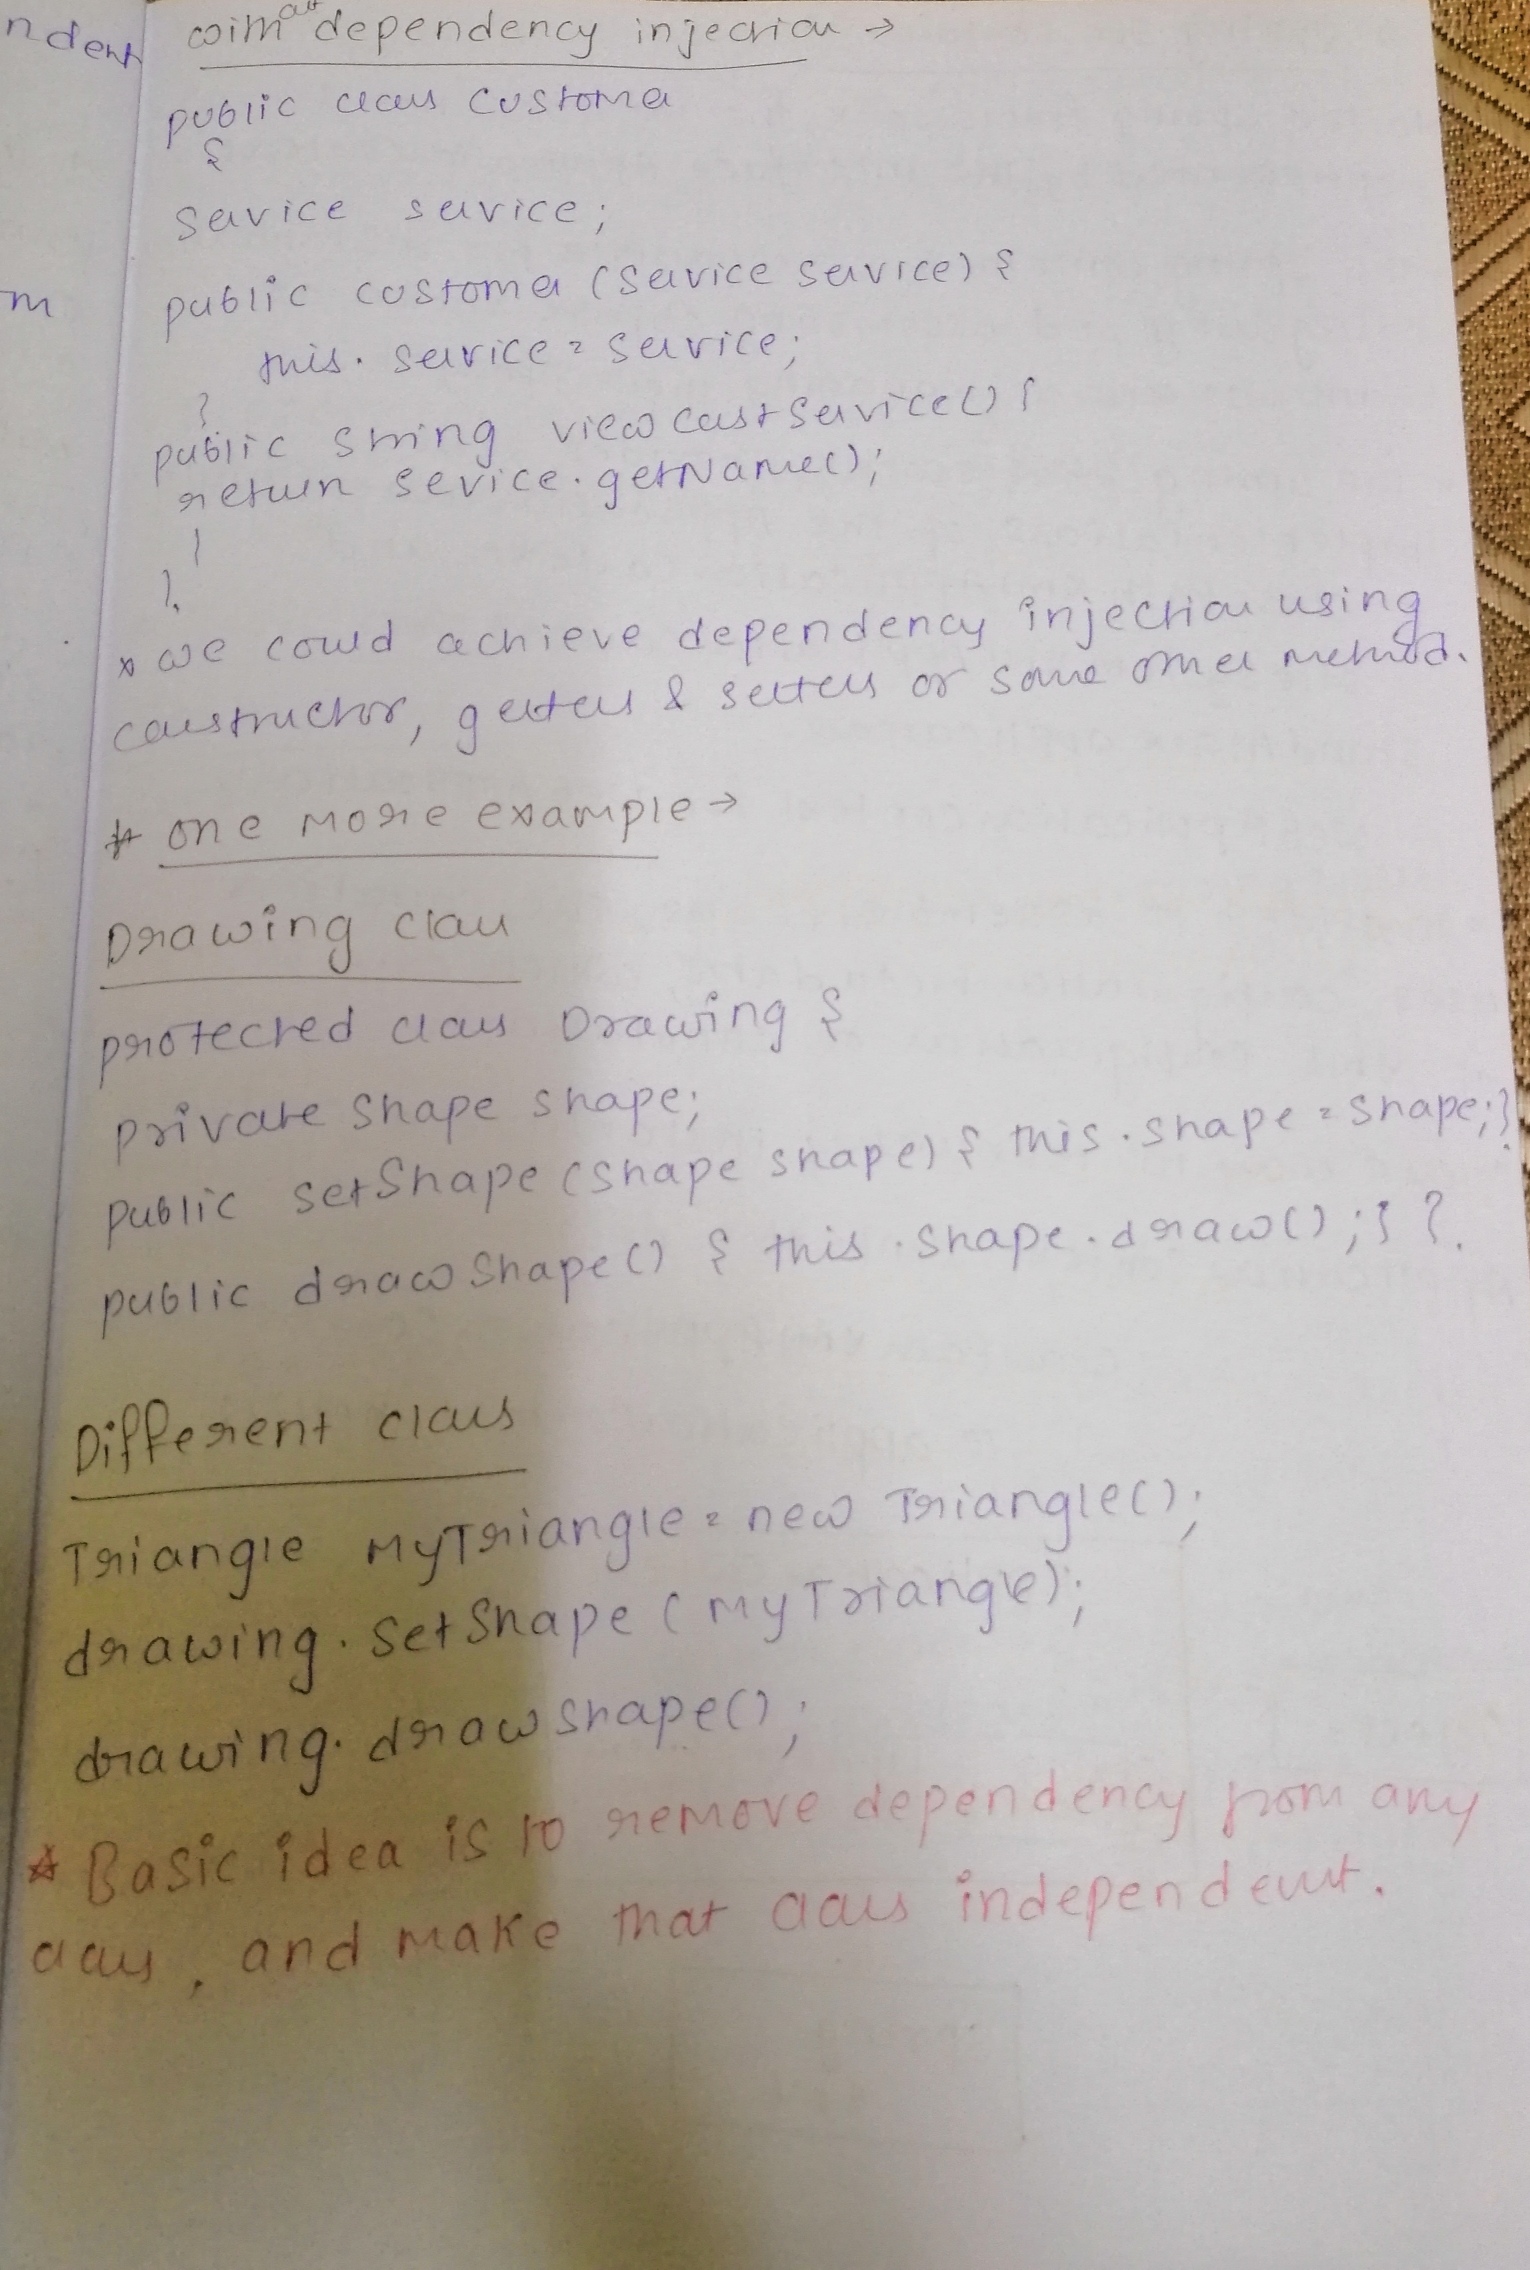 ndent
m
without dependency injection →
public class Customer
{
Service service;
public customer (Service service) {
this. service = service;
}
public String viewCustService() {
return sevice.getName();
}
}.
* we could achieve dependency injection using
constructor, getters & setters or some other method.
* one more example →
Drawing class
protected class Drawing {
private Shape shape;
public setShape (shape shape) { this.shape = shape;}
public drawShape() { this.shape.draw();} }.
Different class
Triangle MyTriangle = new Triangle();
drawing. SetShape (MyTriangle);
drawing. drawshape();
* Basic idea is to remove dependency from any
class, and make that class independent.